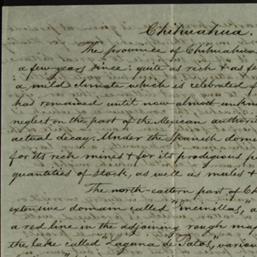 Chihuahua.
The province of Chihuahua
a few years since quite as rich & as
a mild climate which is celebrated f
has remained until now almost unkn
neglect on the part of the Mexican authorit
actual decay. Under the Spanish dom
for its rich mines & for its prodigious fe
quantities of stock, as well as mules &
The north-eastern part of Ch
extensive domain called "
a red line in the adjoining rough map
the lake called Laguna de Patos, variou